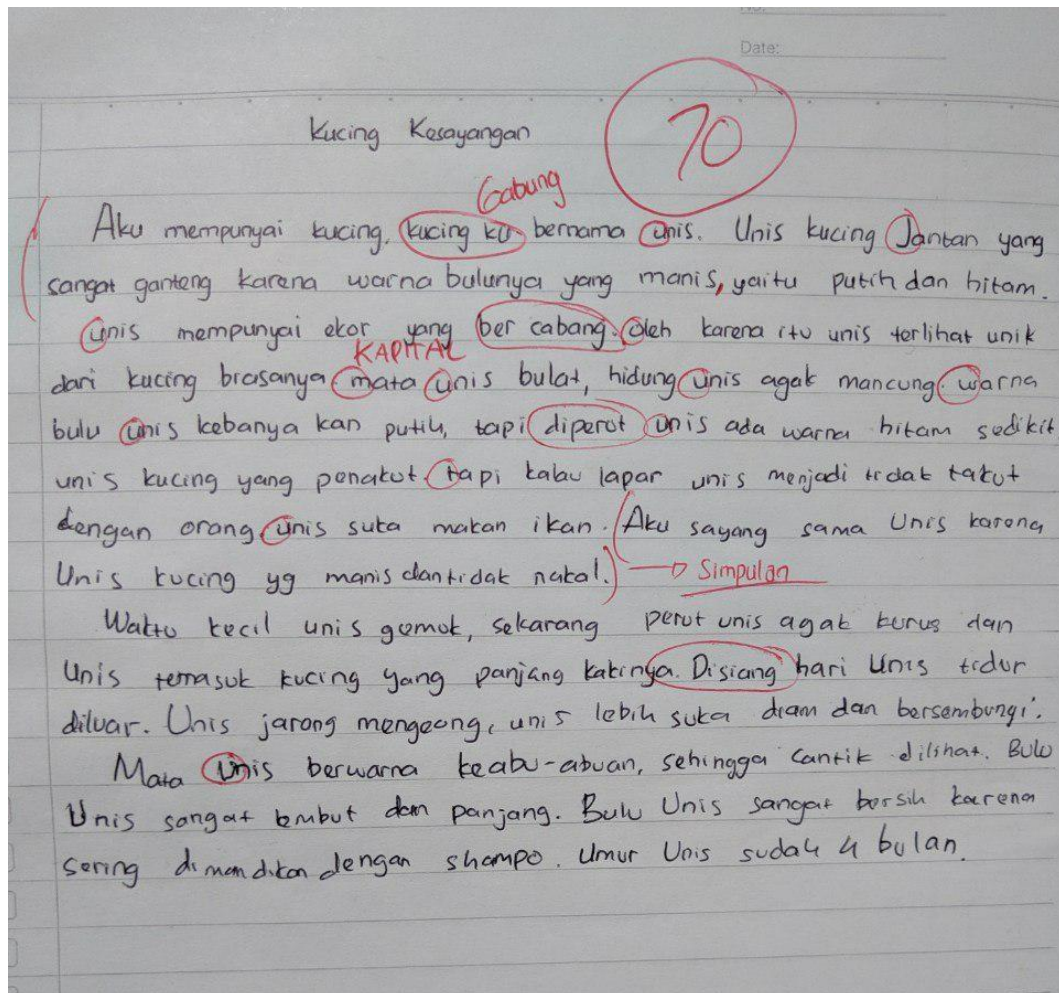 Date:
70
Kucing Kesayangan
Gabung
Aku mempunyai kucing, kucing ku bernama unis. Unis kucing Jantan yang
sangat ganteng karena warna bulunya yang manis, yaitu putih dan hitam.
unis mempunyai ekor yang ber cabang. Oleh karena itu unis terlihat unik
KAPITAL
dari kucing biasanya mata unis bulat, hidung unis agak mancung. warna
bulu unis kebanya kan putih, tapi diperut unis ada warna hitam sedikit
unis kucing yang penakut. tapi kalau lapar unis menjadi tidak takut
dengan orang unis suka makan ikan. Aku sayang sama Unis karena
Unis kucing yg manis dantidak nakal. Simpulan
Waktu kecil unis gemok, sekarang perut unis agak kurus dan
Unis temasuk kucing yang panjang kakinya. Disiang hari Unis tidur
diluar. Unis jarong mengeong, unis lebih suka diam dan bersembungi.
Mata Unis berwarna keabu-abuan, sehingga cantik dilihat. Bulu
Unis sangat lembut dan panjang. Bulu Unis sangat bersih karena
sering dimandikan dengan shampo. Umur Unis sudah 4 bulan.